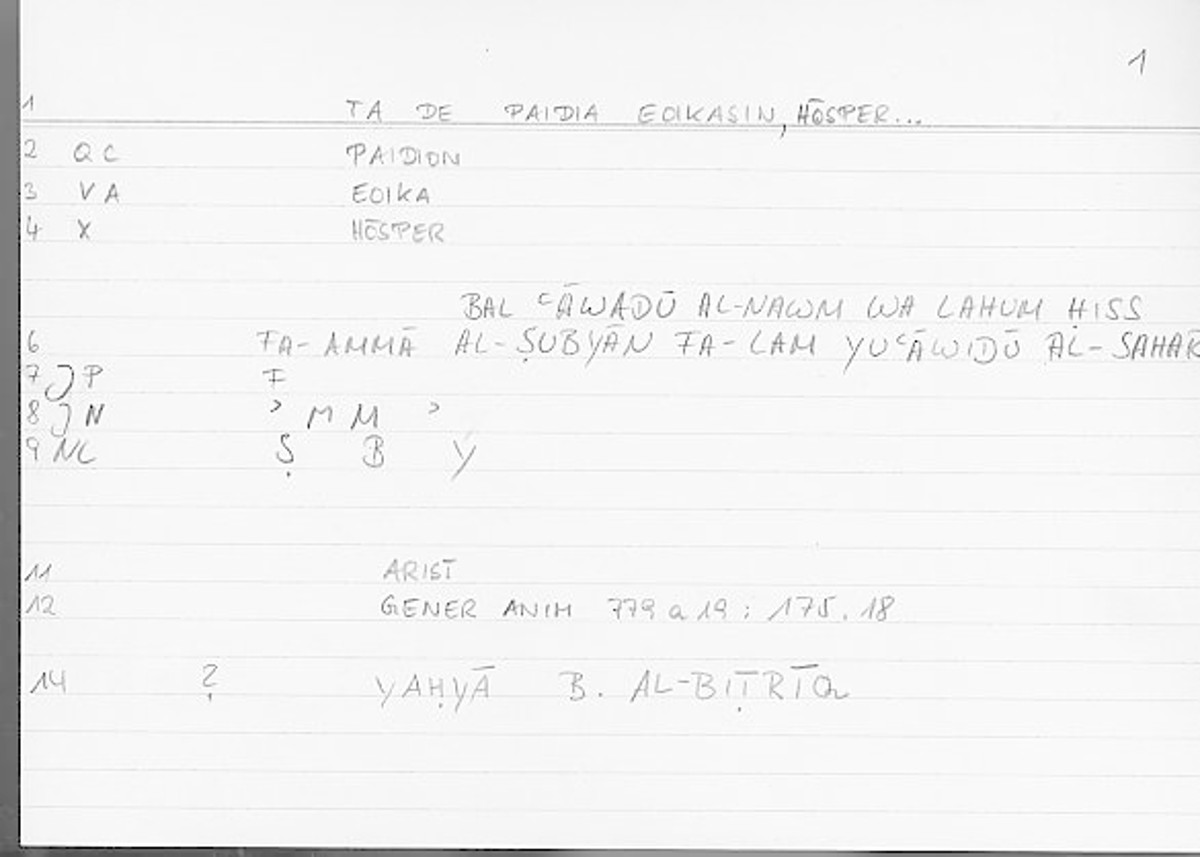 1
1 TA DE PAIDIA EOIKASIN, HŌSPER...
2 QC PAIDION
3 VA EOIKA
4 X HŌSPER
BAL ʿĀWADŪ AL-NAWM WA LAHUM ḤISS
6 FA-AMMĀ AL-ṢUBYĀN FA-LAM YUʿĀWIDŪ AL-SAHAR
7 JP F
8 JN ʾ M M ʾ
9 NC Ṣ B Y
11 ARIST
12 GENER ANIM 779 a 19 : 175.18
14 ? YAḤYĀ B. AL-BIṬRĪQ